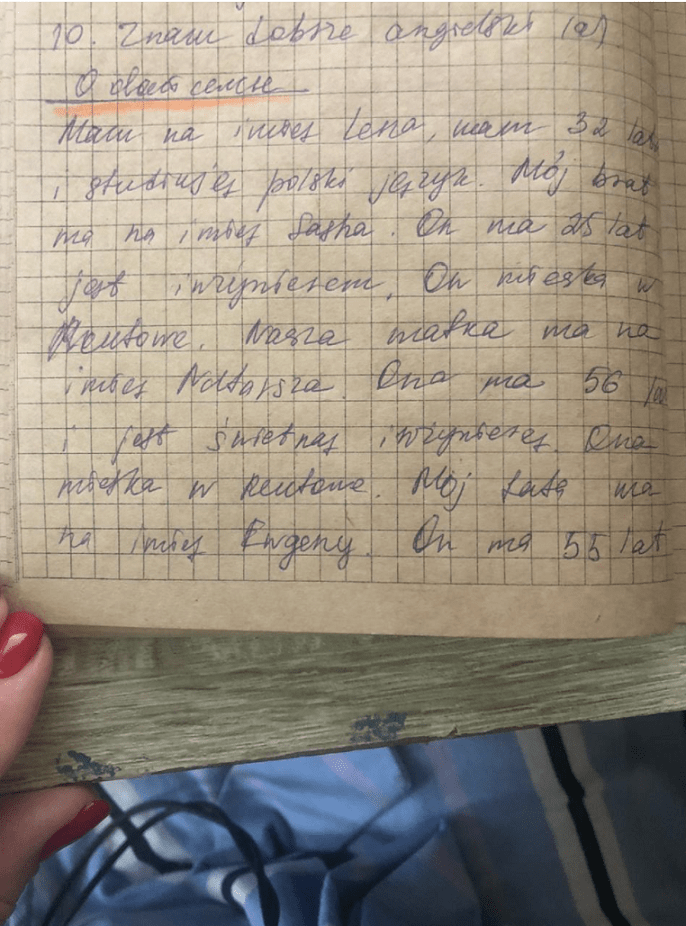 10. Znam dobrze angielski (a)
O
Mam na imięs Lena, mam 32 lat
i studiujęs polski język. Mój brat
ma na imięs Sasha. On ma 25 lat
jest inżynierem. On mieszka w
Reutowe. Nasza matka ma na
imięs Natasza. Ona ma 56 lat
i jest świetnas inżynieres. Ona
mieszka w Reutowe. Mój tata ma
na imięs Ewgeny. On ma 55 lat